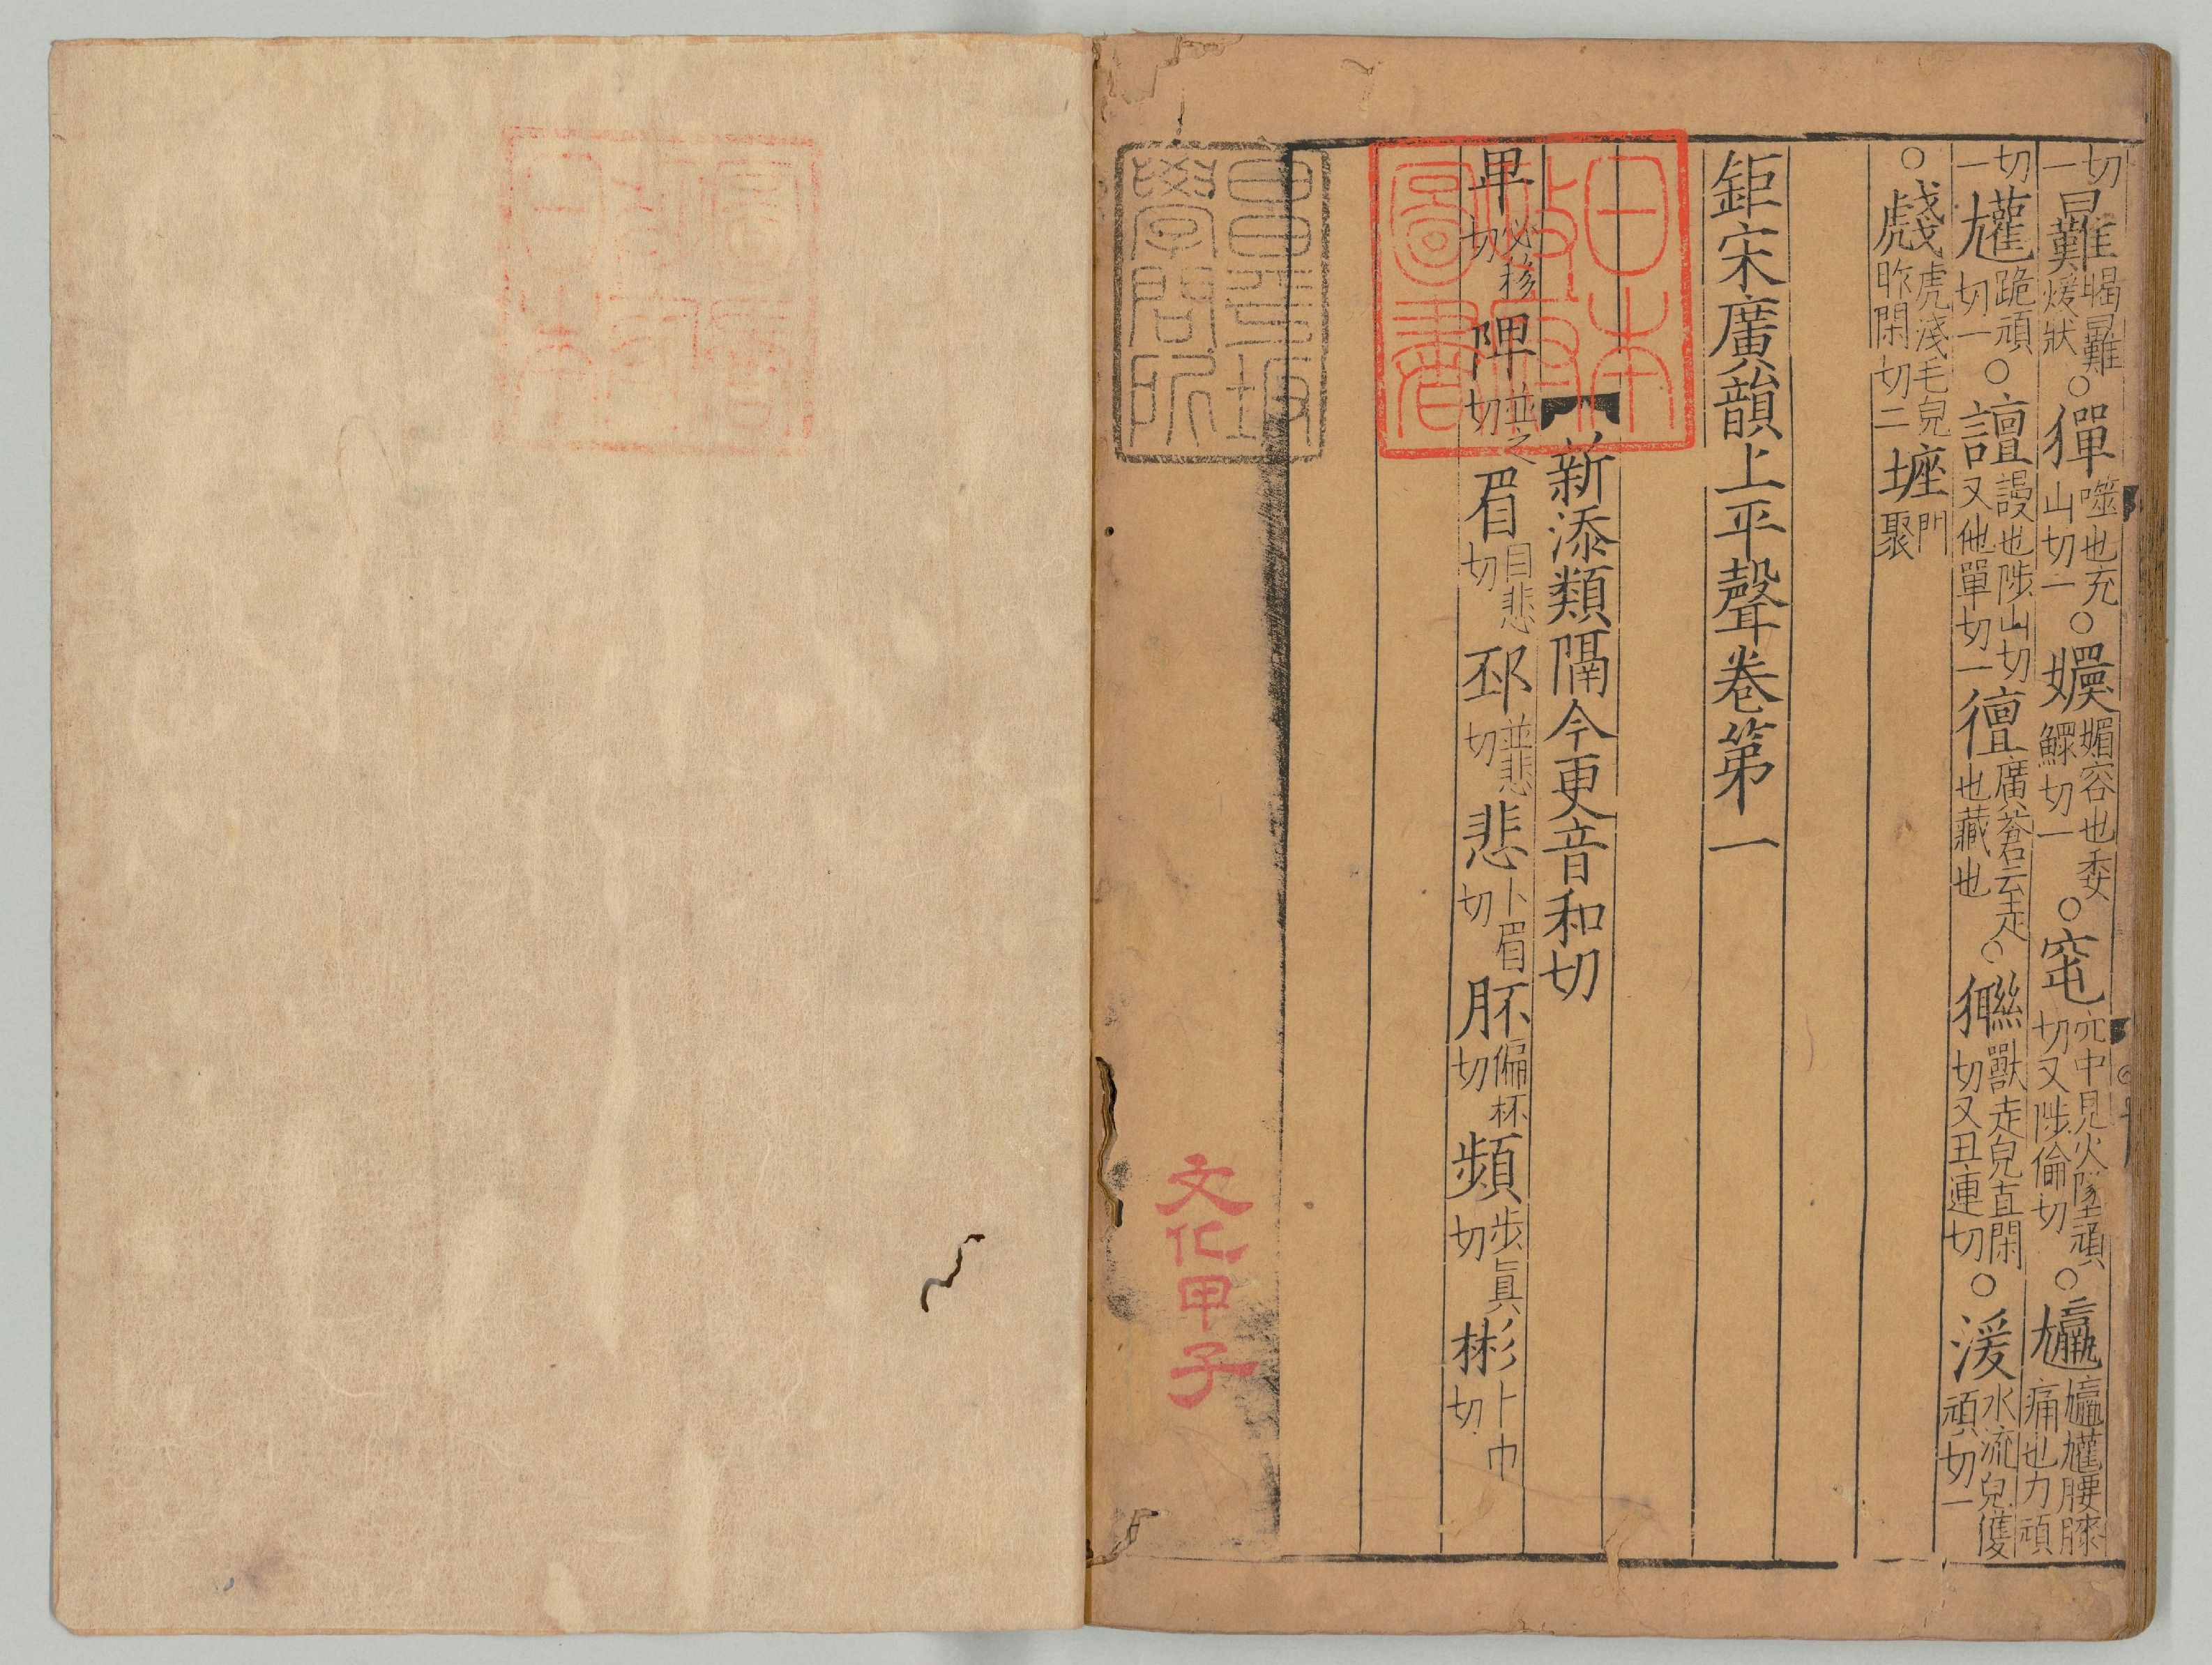 切一㬮暍㬮煗狀○㺗噬也充山切一○嬽媚容也委鰥切一○窀穴中見火墜頑切又陟倫切○尷尷尪腰膝痛也力頑
切一𡰠跪頑切一○譠謾也陟山切又他單切一儃廣蒼云走也藏也○獑獸走皃直閑切又丑連切○湲水流皃獲頑切一
○虥虎淺毛皃昨閑切二㘸門聚
鉅宋廣韻上平聲卷第一
新添類隔今更音和切
卑必移切陴並之切眉目悲切邳並悲切悲卜眉切胚偏杯切頻步眞切彬卜巾切
日本
政府
圖書
昌平坂
學問所
文化甲子